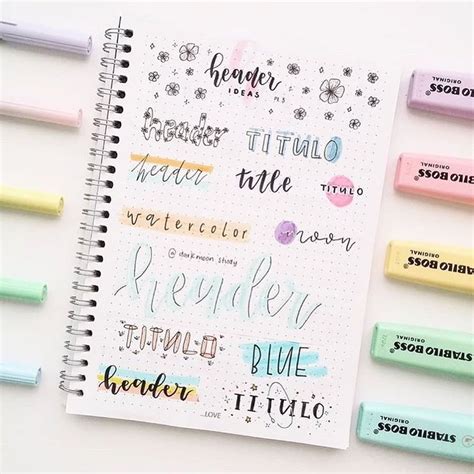 header
IDEAS pt.3
header TITULO
header title TITULO
watercolor moon
@darkmoon.study
header
TITULO BLUE
header TITULO
...LOVE
STABILO BOSS
ORIGINAL
STABILO BOSS
ORIGINAL
STABILO BOSS
ORIGINAL
STABILO BOSS
ORIGINAL
STABILO BOSS
ORIGINAL